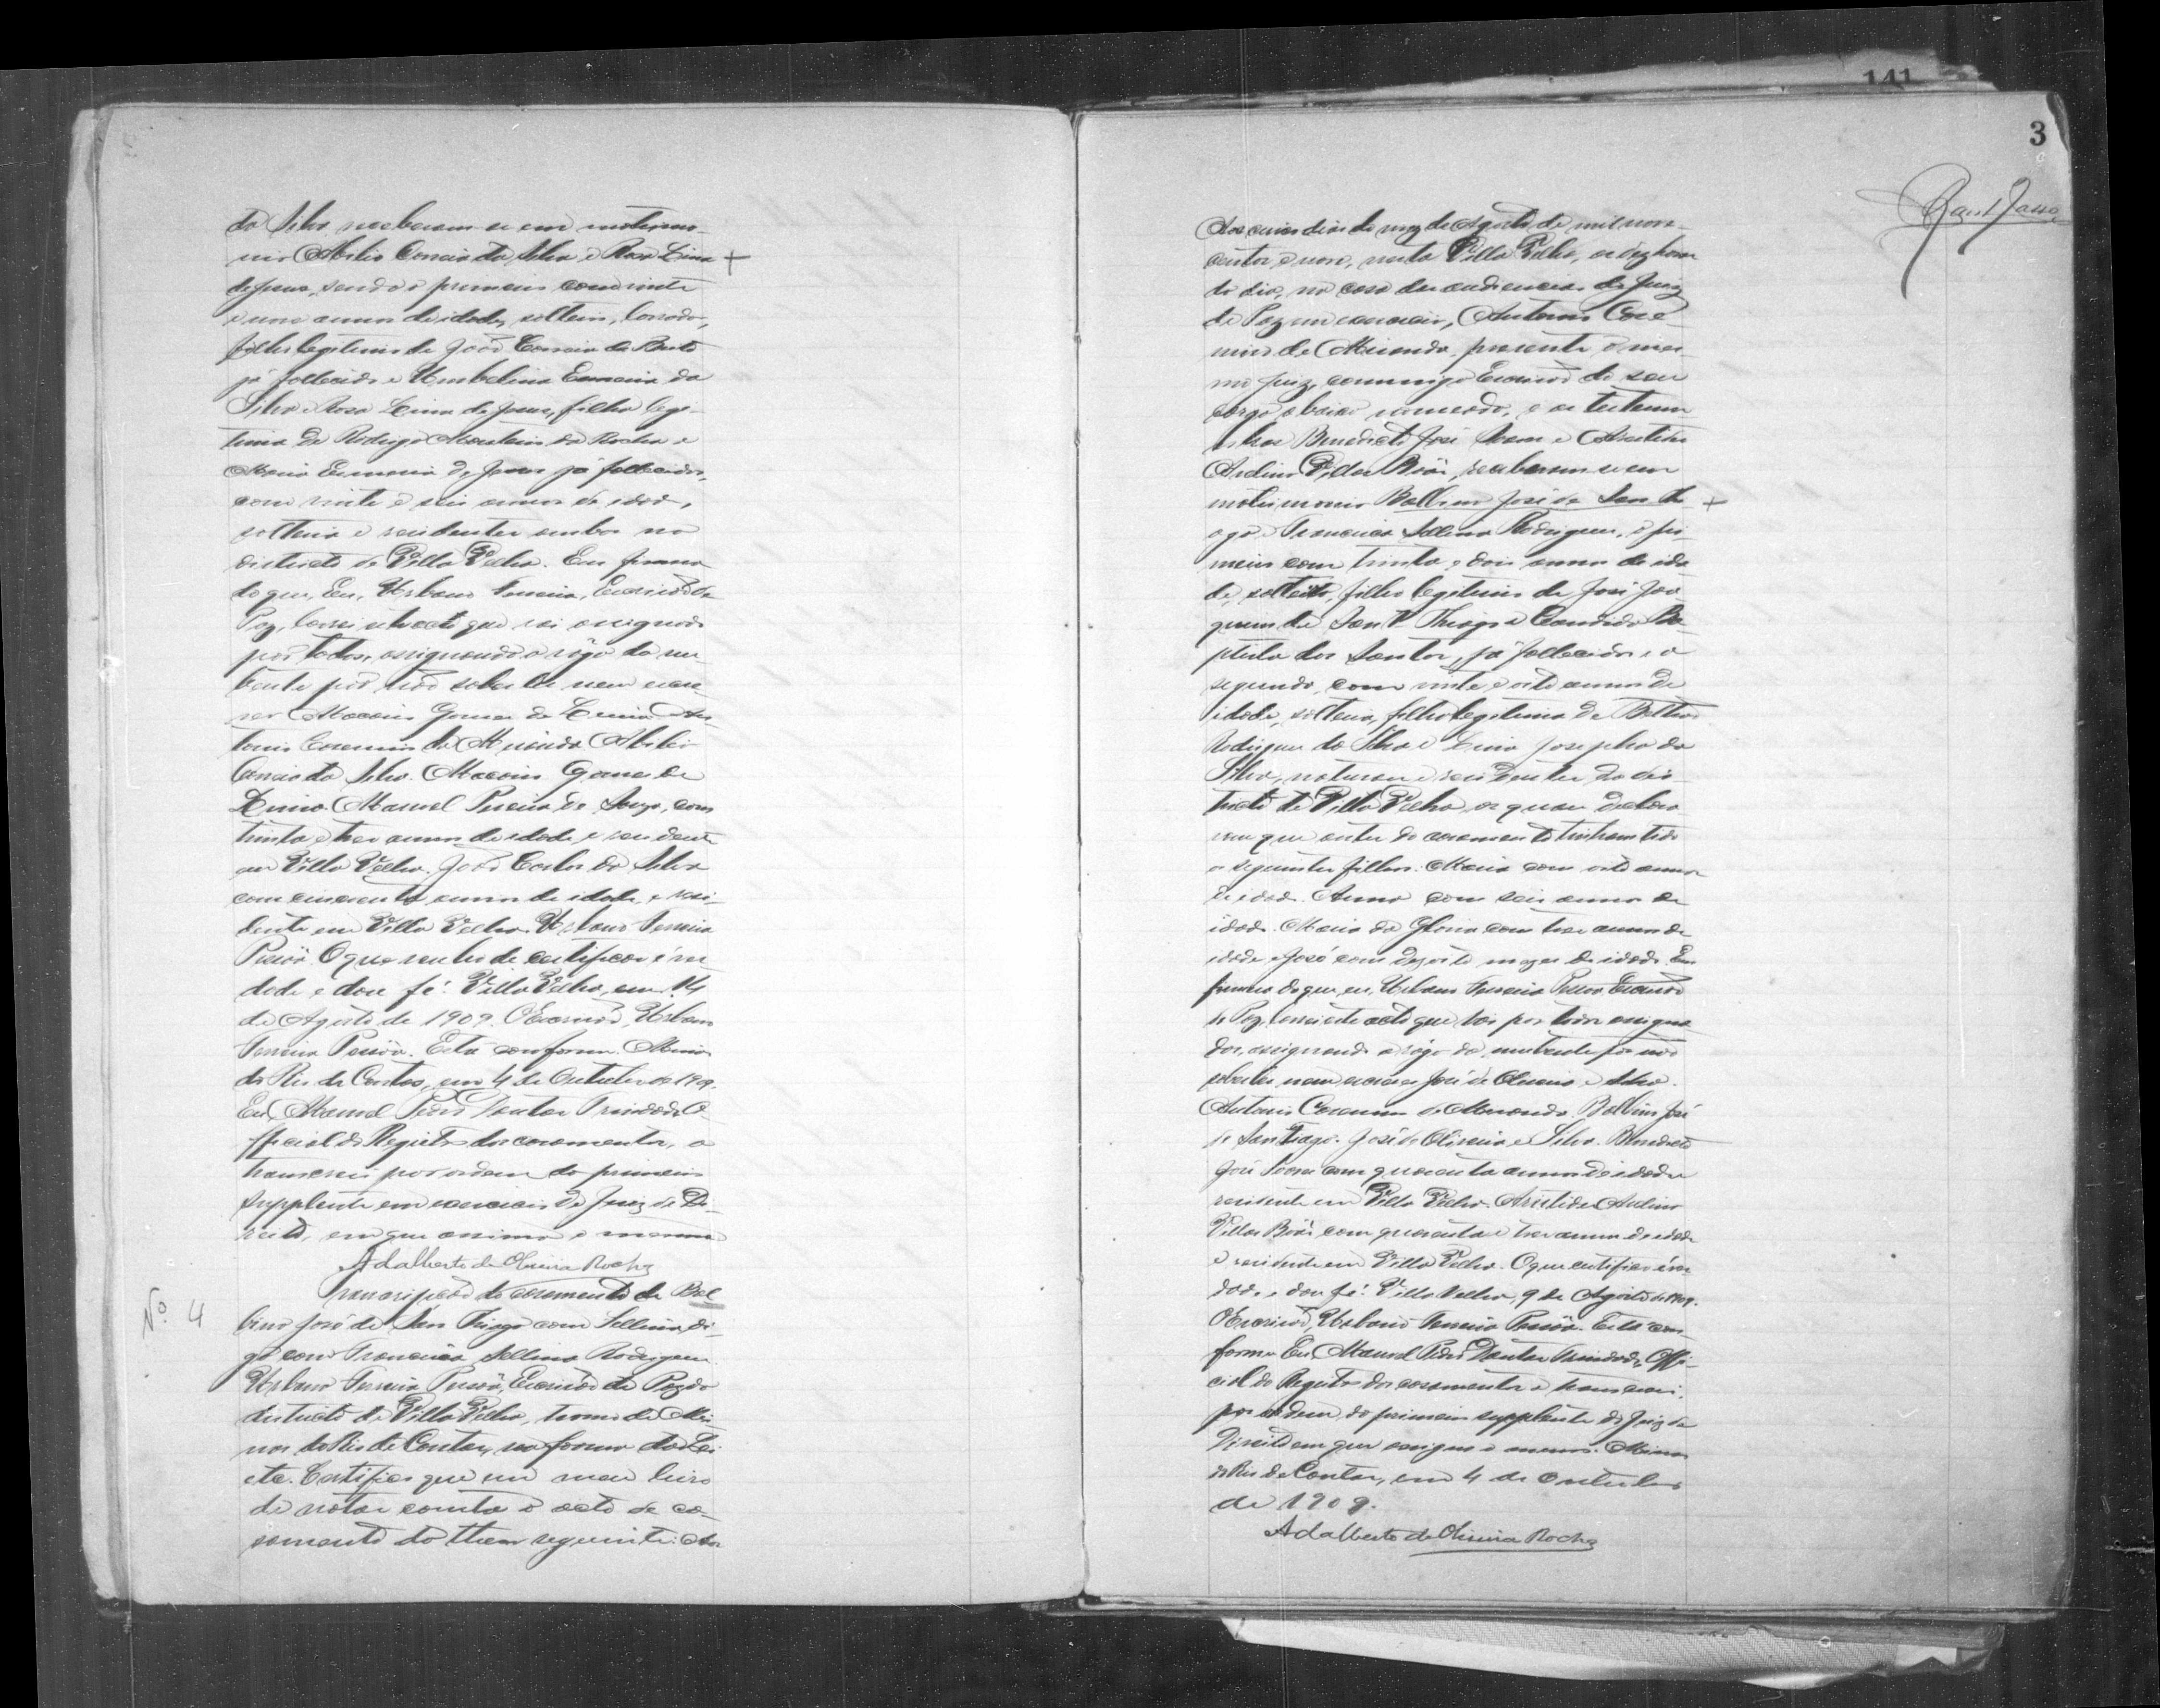 da Silva receberam-se em matrimo-
nio Abilio Correia da Silva e Rosa Lina +
de Jesus, sendo o primeiro com vinte
e nove annos de idade, solteiro, lavrador,
filho legitimo de João Correia de Brito
já fallecido e Umbelina Correia da
Silva e Rosa Lina de Jesus, filha legi-
tima de Rodrigo Monteiro da Rocha e
Maria de Jesus já fallecidos,
com vinte e seis annos de idade,
solteira e residentes ambos no
districto de Villa Velha. Em firmeza
do que, Eu, Urbano Ferreira, Escrivão de
Paz, lavrei este acto que vai assignado
por todos, assignando a rogo da nu-
bente por não saber ler nem escre-
ver Marcos Gomes de An-
tonio de Miranda Abilio
Correia da Silva. Gomes de
Manoel Pereira de Souza, com
trinta e tres annos de idade e residente
em Villa Velha. João Carlos da Silva
com cincoenta annos de idade e resi-
dente em Villa Velha. Urbano Ferreira
Pessôa. O que venho de certificar é ver
dade e dou fé. Villa Velha, em 14
de Agosto de 1909. O Escrivão, Urbano
Ferreira Pessôa. Está conforme. Minas
do Rio de Contas, em 4 de Outubro de 1909.
Eu, Manoel Pedro Dantas Trindade O
fficial do Registro dos casamentos, o
transcrevi por ordem do primeiro
supplente em exercicio do Juiz de Di-
reito, em que assigna o mesmo
Adalberto de Oliveira Rocha
Nº 4 Transcripção do casamento de Bal
bino José de San Thiago com Sellina, di-
go com Francisca Sellina Rodrigues
Urbano Ferreira Pessôa, Escrivão de Paz do
districto de Villa Velha, termo de Mi-
nas do Rio de Contas, na forma da Lei
etc. Certifico que em meu livro
de notas consta o acto de ca-
samento do theor seguinte: Aos
141
3
Aos cinco dias do mez de Agosto de mil nove-
centos e nove, nesta Villa Velha, as dez horas
do dia, na casa das audiencias do Juiz
de Paz em exercicio, Antonio
de Miranda, presente o mes-
mo juiz, commigo Escrivão de seu
cargo abaixo nomeado, e as testemu-
nhas Benedicto José Soares e Aristides
Avelino Villas Bôas, receberam-se em
matrimonio Balbino José de San Thi +
ago e Francisca Sellina Rodrigues, o pri-
meiro com trinta e dois annos de ida
de, solteiro, filho legitimo de José Joa-
quim de San Thiago e Candida Ba-
ptista dos Santos, já fallecidos e a
segunda, com vinte e oito annos de
idade, solteira, filha legitima de
Rodrigues da Silva e Josepha da
Silva, naturaes e residentes do dis-
tricto de Villa Velha, os quaes declara
ram que antes do casamento tinham tido
os seguintes filhos. Maria com oito annos
de idade. Anna com seis annos de
idade. Maria da Gloria com tres annos de
idade e José com dezoito mezes de idade. Em
firmeza do que, eu, Urbano Ferreira Pessôa Escrivão
de Paz, lavrei este acto que vai por todos assigna
dos, assignando a rogo da nubente por não
saber ler nem escrever José de Oliveira e Silva.
Antonio de Miranda. Balbino José
de San Tiago. José de Oliveira e Silva. Benedicto
José Soares com quarenta annos de idade e
residente em Villa Velha. Aristides Avelino
Villas Bôas com quarenta e tres annos de idade
e residente em Villa Velha. O que certifico é ver
dade e dou fé. Villa Velha, 9 de Agosto de 1909.
O Escrivão, Urbano Ferreira Pessôa. Está con-
forme. Eu, Manoel Pedro Dantas Trindade, Offi-
cial do Registro dos casamentos o transcrevi,
por ordem do primeiro supplente do Juiz de
Direito em que assigna o mesmo. Minas
do Rio de Contas, em 4 de Outubro
de 1909.
Adalberto de Oliveira Rocha